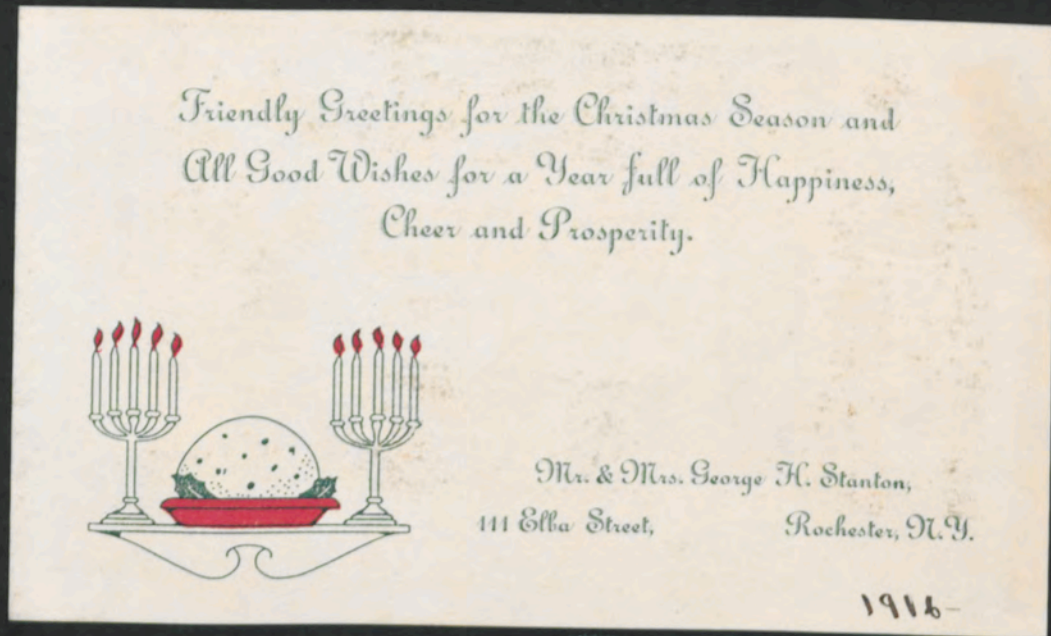 Friendly Greetings for the Christmas Season and
All Good Wishes for a Year full of Happiness,
Cheer and Prosperity.
Mr. & Mrs. George H. Stanton,
111 Elba Street, Rochester, N.Y.
1916-